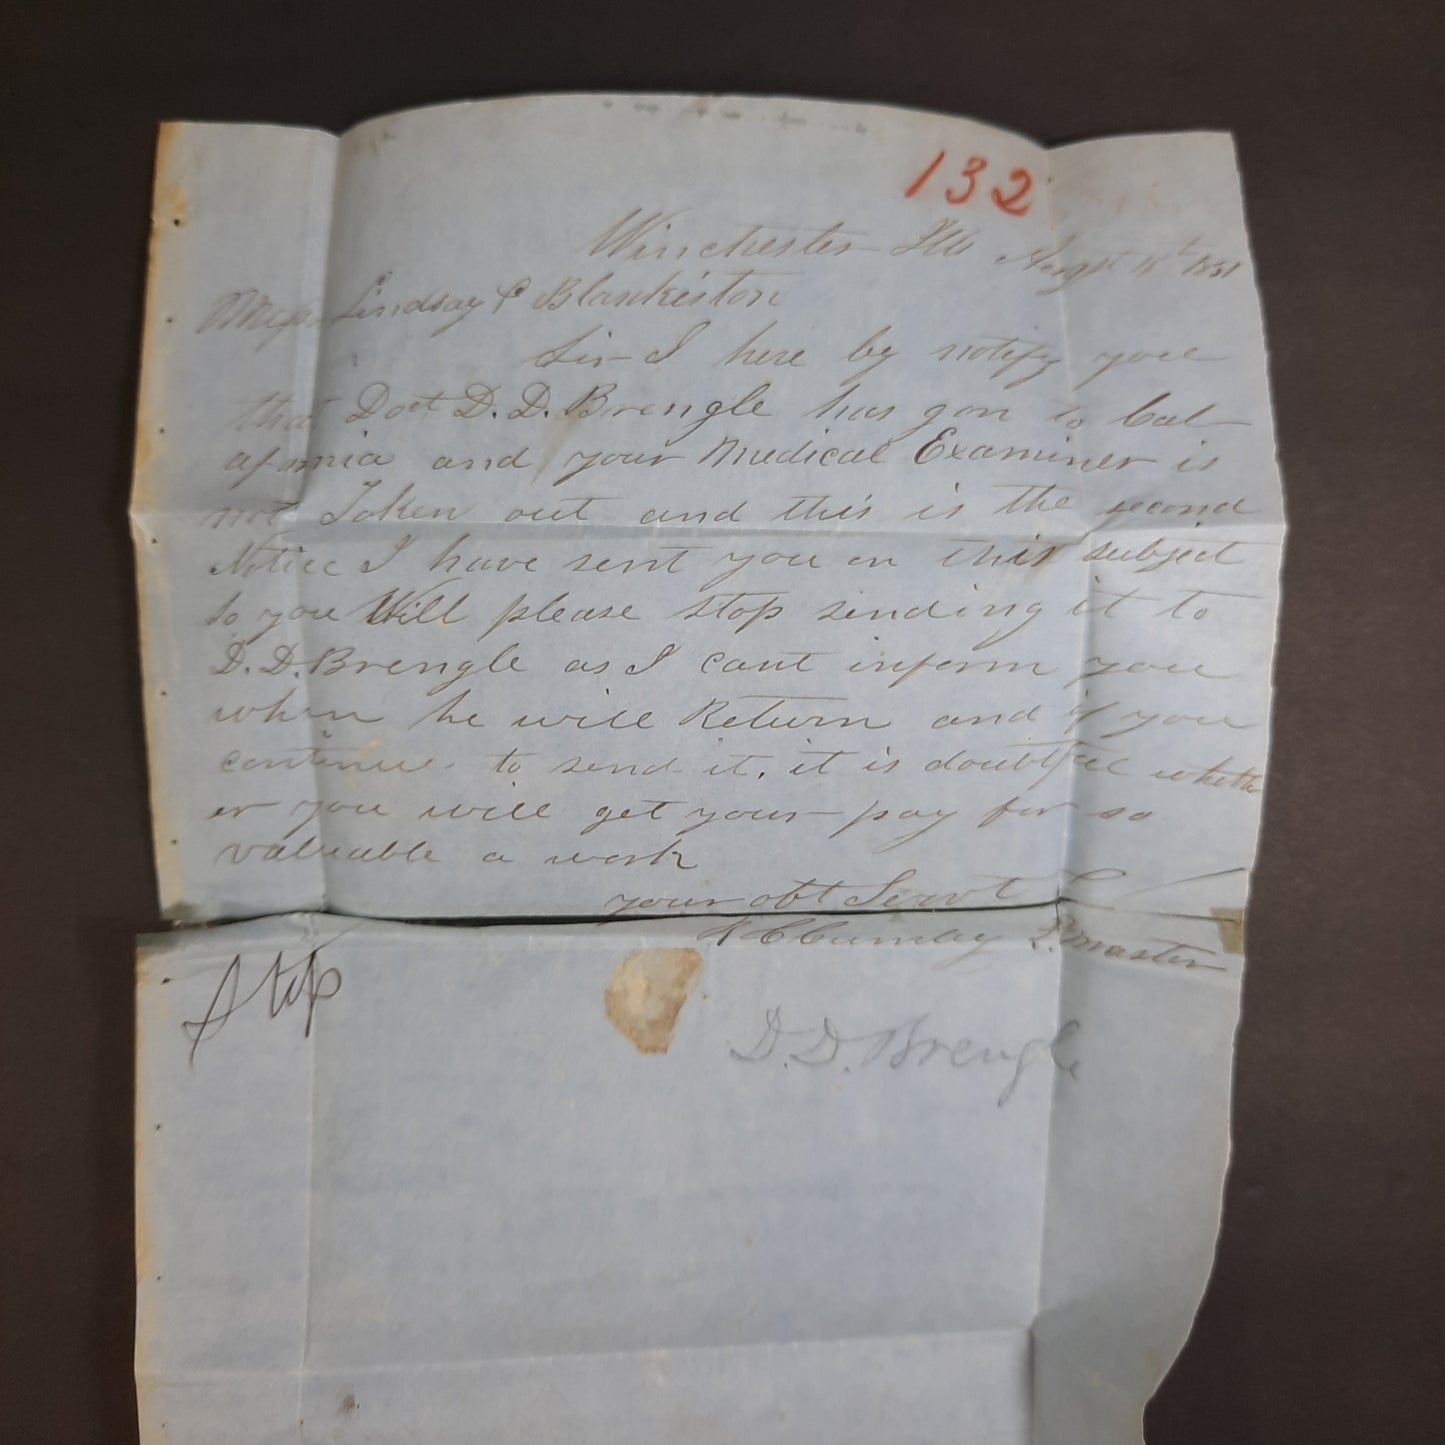 132
Winchester Ills Augst 18th 1851
Messrs Lindsay & Blankiston
Sir I here by notify you
that Doct D. D. Brengle has gon to Cal-
afornia and your Medical Examiner is
not Token out and this is the second
Notice I have sent you on this subject
so you Will please stop sending it to
D. D. Brengle as I cant inform you
when he will Return and if you
continue to send it, it is doubtful wheth
er you will get your pay for so
valuable a work
your obt Servt
P. master
Stop
D. D. Brengle